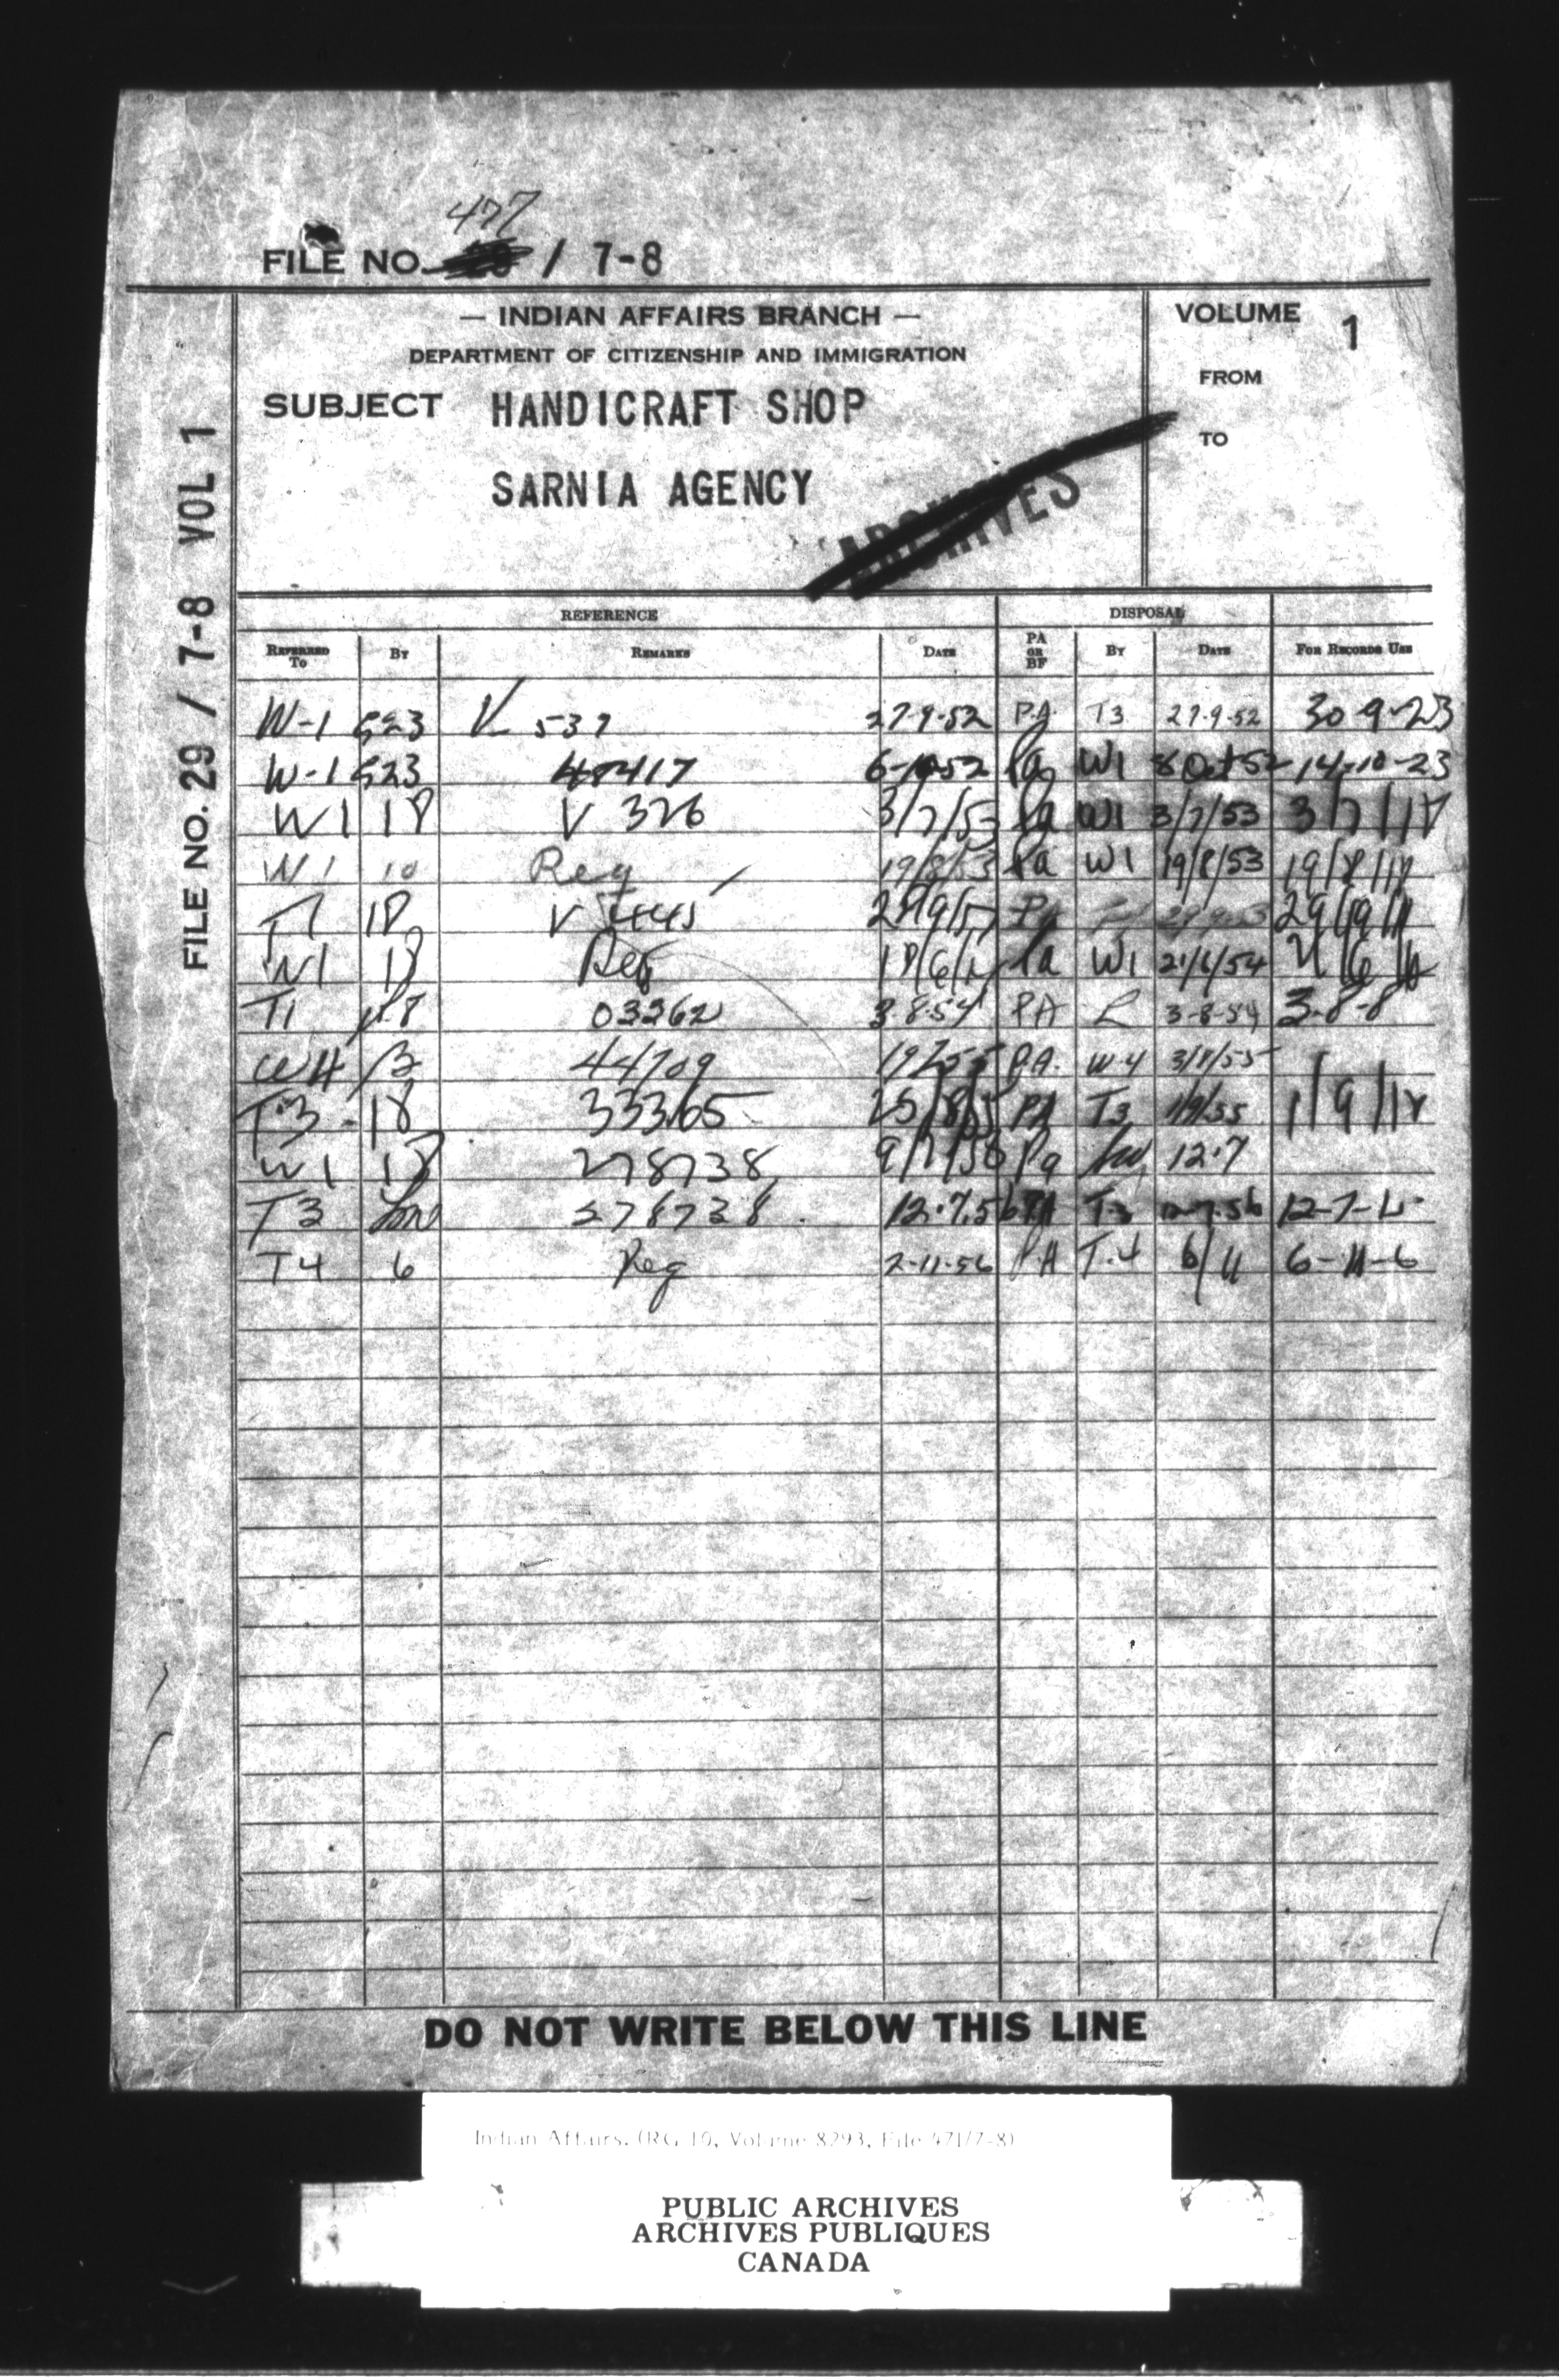 477
FILE NO. / 7-8
— INDIAN AFFAIRS BRANCH —
DEPARTMENT OF CITIZENSHIP AND IMMIGRATION
SUBJECT HANDICRAFT SHOP
SARNIA AGENCY
ARCHIVES
VOLUME 1
FROM
TO
FILE NO. 29 / 7-8 VOL 1
REFERENCE DISPOSAL
REFERRED TO BY REMARKS DATE PA OR BF BY DATE FOR RECORDS USE
W-1 523 V 537 27-9-52 P.A. T3 27-9-52 30-9-23
W-1 523 48417 6-10-52 Pa W1 8 Oct 52 14-10-23
W1 18 V 326 3/7/53 Pa W1 3/7/53 3/7/18
W1 18 Reg 19/8/53 Pa W1 19/8/53 19/8/18
T1 18 V 5445 PA 29/9/18
W1 18 Reg Pa W1 21/6/54
T1 18 03362 3-8-54 PA L 3-8-54 3-8-8
W4 13 44709 PA. W-4 3/8/55
T-3 18 33365 25/8/55 PA T3 1/9/55 1/9/18
W1 18 278738 9/7/56 Pa 12-7
T3 278738 12-7-56 PA T-3 12-7-56 12-7-6
T4 6 Reg 2-11-56 PA T-4 6/11 6-11-6
DO NOT WRITE BELOW THIS LINE
Indian Affairs. (RG 10, Volume 8293, File 471/7-8)
PUBLIC ARCHIVES
ARCHIVES PUBLIQUES
CANADA